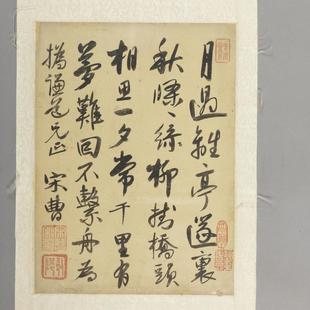 月過離亭邃裏
秋條〻絲柳掛橋頭
相思一夕常千里有
夢難回不繫舟為
謙道兄正 宋曹